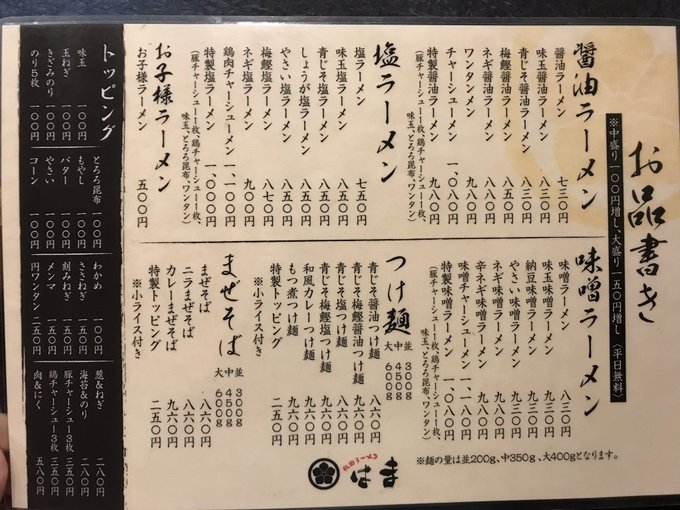 お品書き
※中盛り一〇〇円増し、大盛り一五〇円増し(平日無料)
醤油ラーメン
醤油ラーメン 七三〇円
味玉醤油ラーメン 八三〇円
青じそ醤油ラーメン 八三〇円
梅鰹醤油ラーメン 八五〇円
ネギ醤油ラーメン 八八〇円
ワンタンメン 九〇〇円
チャーシューメン 一、〇八〇円
特製醤油ラーメン 九八〇円
(豚チャーシュー1枚、鶏チャーシュー1枚、
味玉、とろろ昆布、ワンタン)
塩ラーメン
塩ラーメン 七五〇円
味玉塩ラーメン 八五〇円
青じそ塩ラーメン 八五〇円
しょうが塩ラーメン 八五〇円
やさい塩ラーメン 八五〇円
梅鰹塩ラーメン 八七〇円
ネギ塩ラーメン 九〇〇円
鶏肉チャーシューメン 一、一〇〇円
特製塩ラーメン 一、〇〇〇円
(豚チャーシュー1枚、鶏チャーシュー1枚、
味玉、とろろ昆布、ワンタン)
お子様ラーメン
お子様ラーメン 五〇〇円
味噌ラーメン
味噌ラーメン 八三〇円
味玉味噌ラーメン 九三〇円
納豆味噌ラーメン 九三〇円
やさい味噌ラーメン 九三〇円
ネギ味噌ラーメン 九八〇円
辛ネギ味噌ラーメン 九八〇円
味噌チャーシューメン 一、一八〇円
特製味噌ラーメン 一、〇八〇円
(豚チャーシュー1枚、鶏チャーシュー1枚、
味玉、とろろ昆布、ワンタン)
※麺の量は並200g、中350g、大400gとなります。
つけ麺
並 300g
中 450g
大 600g
青じそ醤油つけ麺 八六〇円
青じそ梅鰹醤油つけ麺 九六〇円
青じそ塩つけ麺 八六〇円
青じそ梅鰹塩つけ麺 九六〇円
和風カレーつけ麺 九六〇円
もつ煮つけ麺 九六〇円
特製トッピング 二五〇円
※小ライス付き
まぜそば
並 300g
中 450g
大 600g
まぜそば 八六〇円
ニラまぜそば 九六〇円
カレーまぜそば 九六〇円
特製トッピング 二五〇円
※小ライス付き
はま
トッピング
味玉 一〇〇円
玉ねぎ 一〇〇円
きざみのり 一〇〇円
のり5枚 一〇〇円
とろろ昆布 一〇〇円
もやし 一〇〇円
バター 一〇〇円
やさい 一〇〇円
コーン 一〇〇円
わかめ 一〇〇円
ささみねぎ 一五〇円
刻みねぎ 一五〇円
メンマ 一五〇円
円ワンタン 二五〇円
葱&ねぎ 二八〇円
海苔&のり 二八〇円
豚チャーシュー3枚 三五〇円
鶏チャーシュー3枚 三五〇円
肉&にく 五八〇円